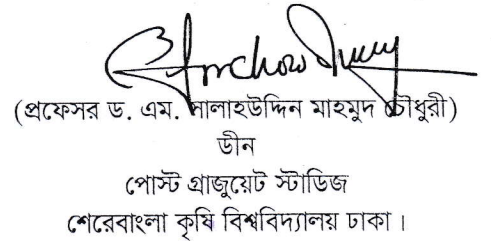 (প্রফেসর ড. এম. সালাহউদ্দিন মাহমুদ চৌধুরী)
ডীন
পোস্ট গ্রাজুয়েট স্টাডিজ
শেরেবাংলা কৃষি বিশ্ববিদ্যালয় ঢাকা।